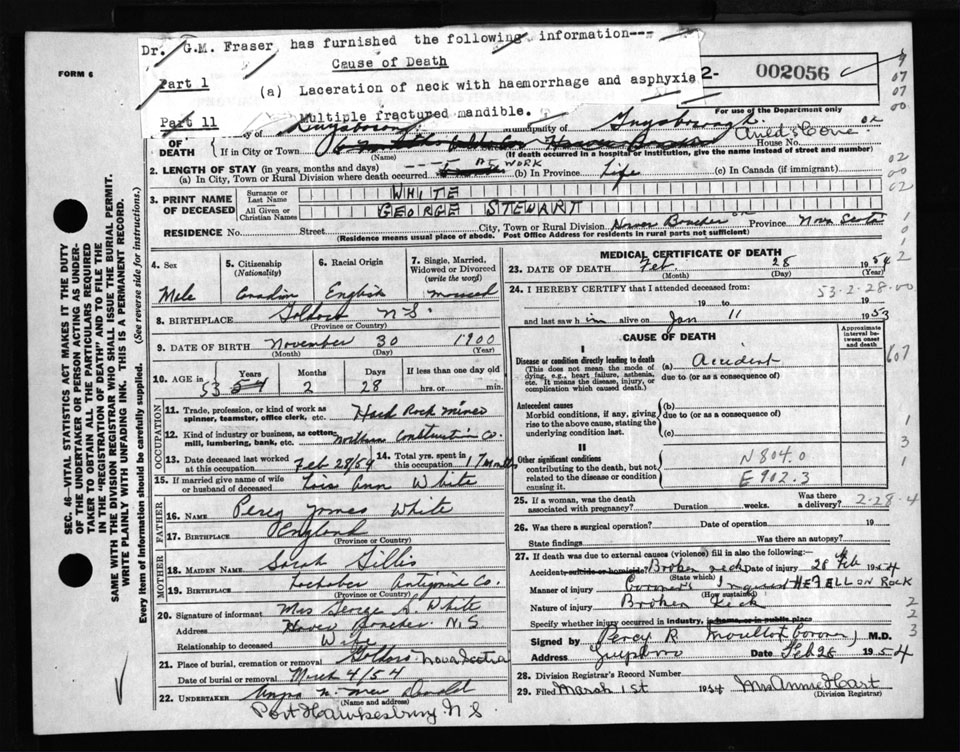 Dr. G.M. Fraser has furnished the following information---
Cause of Death
Part 1
(a) Laceration of neck with haemorrhage and asphyxia
Part 11
Multiple fractured mandible.
FORM 6
2- 002056
For use of the Department only
of Municipality of Guysborough
OF DEATH { If in City or Town House No.
(Name) (If death occurred in a hospital or institution, give the name instead of street and number)
2. LENGTH OF STAY (in years, months and days)
(a) In City, Town or Rural Division where death occurred AT WORK (b) In Province Life (c) In Canada (if immigrant)
3. PRINT NAME OF DECEASED { Surname or Last Name WHITE
All Given or Christian Names GEORGE STEWART
RESIDENCE No. Street City, Town or Rural Division Province Nova Scotia
(Residence means usual place of abode. Post Office Address for residents in rural parts not sufficient)
SEC. 46—VITAL STATISTICS ACT MAKES IT THE DUTY
OF THE UNDERTAKER OR PERSON ACTING AS UNDER-
TAKER TO OBTAIN ALL THE PARTICULARS REQUIRED
IN THE "REGISTRATION OF DEATH" AND TO FILE THE
SAME WITH THE DIVISION REGISTRAR WHO SHALL ISSUE THE BURIAL PERMIT.
WRITE PLAINLY WITH UNFADING INK. THIS IS A PERMANENT RECORD.
Every item of information should be carefully supplied. (See reverse side for instructions.)
4. Sex Male
5. Citizenship (Nationality) Canadian
6. Racial Origin English
7. Single, Married, Widowed or Divorced (write the word)
8. BIRTHPLACE N.S.
(Province or Country)
9. DATE OF BIRTH November 30 1900
(Month) (Day) (Year)
10. AGE in 53 Years 2 Months 28 Days If less than one day old hrs. or min.
OCCUPATION
11. Trade, profession, or kind of work as spinner, teamster, office clerk, etc. Hard Rock Miner
12. Kind of industry or business, as cotton mill, lumbering, bank, etc. Northern Construction Co.
13. Date deceased last worked at this occupation Feb 28/54 14. Total yrs. spent in this occupation 17 Months
15. If married give name of wife or husband of deceased Lois Ann White
FATHER
16. NAME Percy James White
17. BIRTHPLACE England
(Province or Country)
MOTHER
18. MAIDEN NAME Sarah Gillis
19. BIRTHPLACE Lochaber Antigonish Co.
(Province or Country)
20. Signature of informant Mrs George S. White
Address N.S
Relationship to deceased Wife
21. Place of burial, cremation or removal Nova Scotia
Date of burial or removal March 4/54
22. UNDERTAKER
(Name and address)
Port Hawkesbury N S.
MEDICAL CERTIFICATE OF DEATH
23. DATE OF DEATH Feb. 28 1954
(Month) (Day) (Year)
24. I HEREBY CERTIFY that I attended deceased from:
53-2-28-00
19 to 19
and last saw him alive on Jan 11 1953
CAUSE OF DEATH
Approximate interval between onset and death
I
Disease or condition directly leading to death
(This does not mean the mode of dying, e.g., heart failure, asthenia, etc. It means the disease, injury, or complication which caused death.)
(a) Accident
due to (or as a consequence of)
Antecedent causes
Morbid conditions, if any, giving rise to the above cause, stating the underlying condition last.
(b)
due to (or as a consequence of)
(c)
II
Other significant conditions
contributing to the death, but not related to the disease or condition causing it.
N804.0
E902.3
25. If a woman, was the death associated with pregnancy? Duration weeks. Was there a delivery?
2-28-4
26. Was there a surgical operation? Date of operation 19
State findings Was there an autopsy?
27. If death was due to external causes (violence) fill in also the following:—
Accident, suicide or homicide? Broken neck Date of injury 28 Feb 1954
(State which)
Manner of injury Coroner's Inquest HE FELL ON ROCK
(How sustained)
Nature of injury Broken Neck
Specify whether injury occurred in industry, in home, or in public place
Signed by Percy R Coroner M.D.
Address Date Feb 28 1954
28. Division Registrar's Record Number
29. Filed March 1st 1954 Mrs Annie Hart
(Division Registrar)